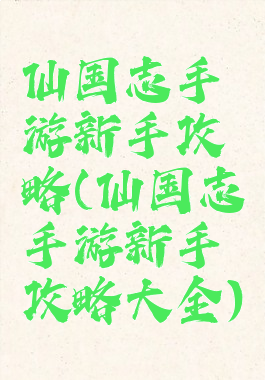 仙国志手
游新手攻
略(仙国志
手游新手
攻略大全)